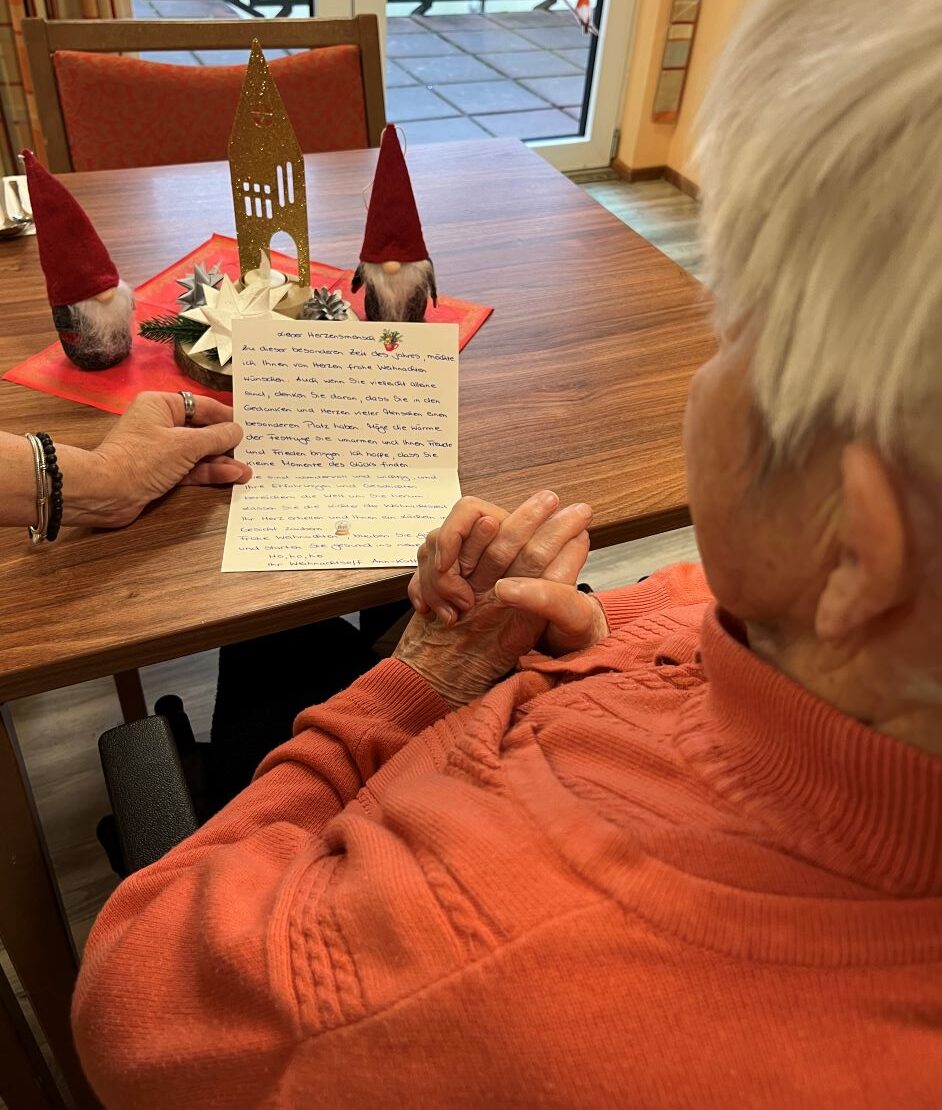 Lieber Herzensmensch
Zu dieser besonderen Zeit des Jahres, möchte
ich Ihnen von Herzen frohe Weihnachten
wünschen. Auch wenn Sie vielleicht alleine
sind, denken Sie daran, dass Sie in den
Gedanken und Herzen vieler Menschen einen
besonderen Platz haben. Möge die Wärme
der Festtage Sie umarmen und Ihnen Freude
und Frieden bringen. Ich hoffe, dass Sie
kleine Momente des Glücks finden.
Sie sind wundervoll und wichtig, und
Ihre Erfahrungen und Geschichten
bereichern die Welt um Sie herum.
Lassen Sie die Lichter der Weihnachtszeit
Ihr Herz erhellen und Ihnen ein Lächeln in
Gesicht zaubern
Frohe Weihnachten, bleiben Sie
und starten Sie gesund ins neue
Ho, ho, ho
Ihr Weihnachtself Ann-Kath